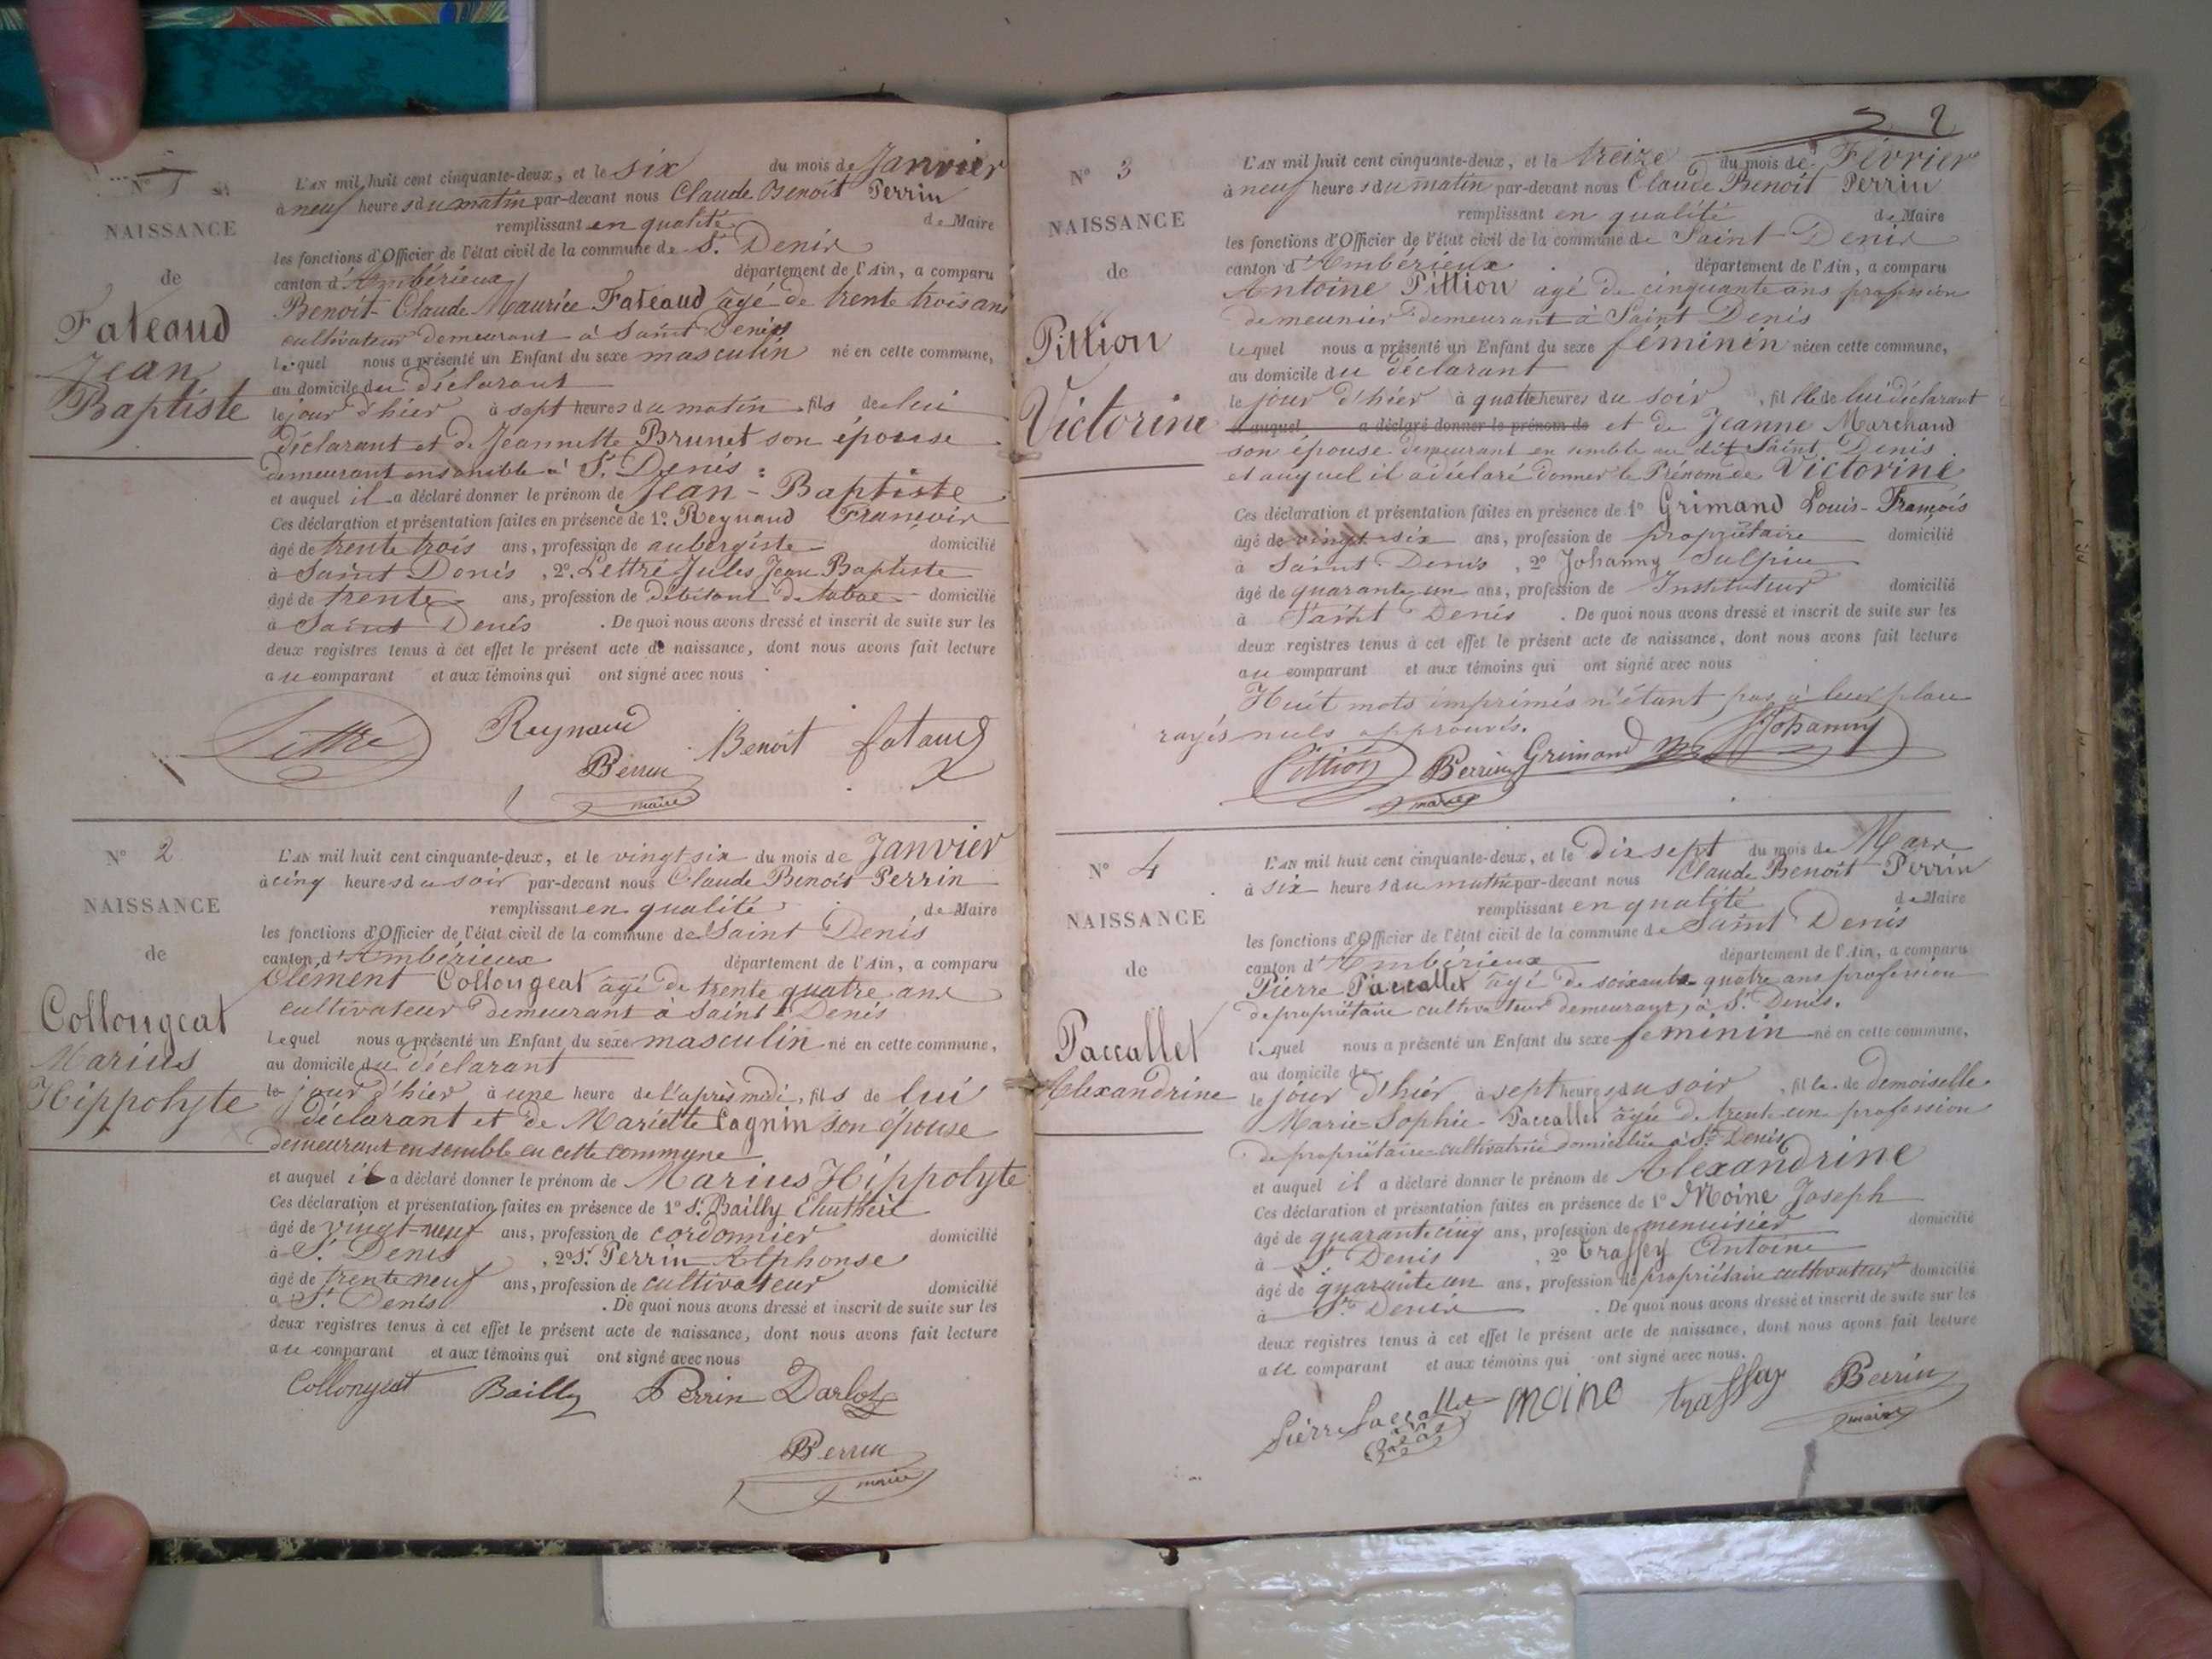 N° 1
NAISSANCE
de
Fateaud
Jean
Baptiste
L'AN mil huit cent cinquante-deux, et le six du mois de Janvier
à neuf heures du matin par-devant nous Claude Benoit Perrin
remplissant en qualité de Maire
les fonctions d'Officier de l'état civil de la commune de St. Denis
canton d'Ambérieux département de l'Ain, a comparu
Benoit-Claude Maurice Fateaud âgé de trente trois ans
cultivateur demeurant à Saint Denis
lequel nous a présenté un Enfant du sexe masculin né en cette commune,
au domicile du déclarant
le jour d'hier à sept heures du matin fils de lui
déclarant et de Jeannette Brunet son épouse
demeurant ensemble à St. Denis
et auquel il a déclaré donner le prénom de Jean-Baptiste
Ces déclaration et présentation faites en présence de 1° Reynaud François
âgé de trente trois ans, profession de aubergiste domicilié
à Saint Denis, 2° Lettré Jules Jean Baptiste
âgé de trente ans, profession de débitant de tabac domicilié
à Saint Denis. De quoi nous avons dressé et inscrit de suite sur les
deux registres tenus à cet effet le présent acte de naissance, dont nous avons fait lecture
au comparant et aux témoins qui ont signé avec nous
Lettré Reynaud Benoit fataud
Perrin
maire
N° 2
NAISSANCE
de
Collongeat
Marius
Hippolyte
L'AN mil huit cent cinquante-deux, et le vingt six du mois de Janvier
à cinq heures du soir par-devant nous Claude Benoit Perrin
remplissant en qualité de Maire
les fonctions d'Officier de l'état civil de la commune de Saint Denis
canton d'Ambérieux département de l'Ain, a comparu
Clément Collongeat âgé de trente quatre ans
cultivateur demeurant à Saint-Denis
Lequel nous a présenté un Enfant du sexe masculin né en cette commune,
au domicile du déclarant
le jour d'hier à une heure de l'après midi, fils de lui
déclarant et de Mariette Cagnin son épouse
demeurant ensemble en cette commune
et auquel il a déclaré donner le prénom de Marius Hippolyte
Ces déclaration et présentation faites en présence de 1° Sr. Bailly Eluthère
âgé de vingt-neuf ans, profession de cordonnier domicilié
à St. Denis, 2° Sr. Perrin Alphonse
âgé de trente neuf ans, profession de cultivateur domicilié
à St. Denis. De quoi nous avons dressé et inscrit de suite sur les
deux registres tenus à cet effet le présent acte de naissance, dont nous avons fait lecture
au comparant et aux témoins qui ont signé avec nous
Collongeat Bailly Perrin Darlot
Perrin
maire
2
N° 3
NAISSANCE
de
Pittion
Victorine
L'AN mil huit cent cinquante-deux, et le treize du mois de Février
à neuf heures du matin par-devant nous Claude Benoit Perrin
remplissant en qualité de Maire
les fonctions d'Officier de l'état civil de la commune de Saint Denis
canton d'Ambérieux département de l'Ain, a comparu
Antoine Pittion âgé de cinquante ans profession
de meunier demeurant à Saint Denis
lequel nous a présenté un Enfant du sexe féminin née en cette commune,
au domicile du déclarant
le jour d'hier à quatre heures du soir, fille de lui déclarant
et auquel a déclaré donner le prénom de et de Jeanne Marchand
son épouse demeurant ensemble au dit Saint Denis
et auquel il a déclaré donner le Prénom de Victorine
Ces déclaration et présentation faites en présence de 1° Grimand Louis-François
âgé de vingt six ans, profession de propriétaire domicilié
à Saint Denis, 2° Johanny Sulpice
âgé de quarante un ans, profession de Instituteur domicilié
à Saint Denis. De quoi nous avons dressé et inscrit de suite sur les
deux registres tenus à cet effet le présent acte de naissance, dont nous avons fait lecture
au comparant et aux témoins qui ont signé avec nous
Huit mots imprimés n'étant pas à leur place
rayés nuls approuvés.
Pittion Perrin Grimand Johanny
maire
N° 4
NAISSANCE
de
Paccallet
Alexandrine
L'AN mil huit cent cinquante-deux, et le dix sept du mois de Mars
à six heures du matin par-devant nous Claude Benoit Perrin
remplissant en qualité de Maire
les fonctions d'Officier de l'état civil de la commune de Saint Denis
canton d'Ambérieux département de l'Ain, a comparu
Pierre Paccallet âgé de soixante quatre ans profession
de propriétaire cultivateur demeurant à St. Denis.
lequel nous a présenté un Enfant du sexe féminin né en cette commune,
au domicile de
le jour d'hier à sept heures du soir, fille de demoiselle
Marie-Sophie Paccallet âgée de trente un profession
de propriétaire cultivatrice domiciliée à St. Denis
et auquel il a déclaré donner le prénom de Alexandrine
Ces déclaration et présentation faites en présence de 1° Moine Joseph
âgé de quarante cinq ans, profession de menuisier domicilié
à St. Denis, 2° Trassey Antoine
âgé de quarante un ans, profession de propriétaire cultivateur domicilié
à St. Denis. De quoi nous avons dressé et inscrit de suite sur les
deux registres tenus à cet effet le présent acte de naissance, dont nous avons fait lecture
au comparant et aux témoins qui ont signé avec nous.
Pierre Paccallet moine trassey Perrin
maire